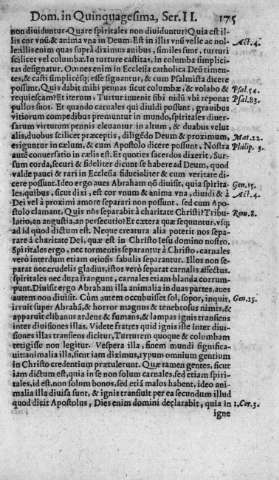 Dom. in Quinquagesima, Ser. II. 175
non diuiduntur. Quare spiritales non diuiduntur? Quia est il-
lis cor vnũ & anima vna in Deum. Est illis vnũ velle ac nol- Act. 4.
le: illis enim quas suprà diximus auibus, similes sunt, turturi
scilicet vel columbæ. In turture castitas, in columba simplici-
tas designatur. Omnes enim in Ecclesia catholica Deũ timen-
tes, & casti simplicésq; esse signantur, & cum Psalmista dicere
possunt, Quis dabit mihi pennas sicut columbæ, & volabo & Psal. 54.
requiescam? Et iterum: Turtur inuenit sibi nidũ vbi reponat Psal. 83.
pullos suos. Et quando carnales qui diuidi possunt, grauibus
vitiorum compedibus premuntur in mundo, spiritales diuer-
sarum virtutum pennis eleuantur in altum, & duabus velut
alis, duobus scilicet præceptis, dilige͂do Deum & proximum, Mat. 22.
eriguntur in cælum, & cum Apostolo dicere possunt, Nostra Philip. 3.
autẽ conuersatio in cælis est. Et quoties sacerdos dixerit, Sur-
sum corda, securi & fideliter dicunt se habere ad Deum, quod
valde pauci & rari in Ecclesia fiducialiter & cum veritate di-
cere possunt. Ideo ergo aues Abraham nõ diuisit, quia spirita- Gen. 15.
les, quibus, sicut dixi, est cor vnum & anima vna, diuidi & à Act. 4.
Dei vel à proximi amore separari non possunt, sed cum Apo-
stolo clamant, Quis nos separabit à charitate Christi? Tribu- Rom. 8.
latio, an angustia, an persecutio? Et cætera quæ sequuntur, vsq;
ad id quod dictum est, Neque creatura alia poterit nos sepa-
rare à charitate Dei, quæ est in Christo Iesu domino nostro.
Spiritales ergo, nec tormentis separantur à Christo, carnales
verò interdum etiam otiosis fabulis separantur. Illos non se-
parat nec crudelis gladius, istos verò separat carnalis affectus.
spiritales nec dura frangunt, carnales etiam blanda corrum-
punt. Diuisit ergo Abraham illa animalia in duas partes, aues
autem non diuisit. Cùm autem occubuisset sol, sopor, inquit, Gen. 15.
irruit super Abrahã, & horror magnus & tenebrosus nimis, &
apparuit clibanus ardens & fumans, & lampas ignis transiens
inter diuisiones illas. Videte fratres quid ignis iste inter diui-
siones illas transens dicitur, Turturem quoque & columbam
tetigisse non legitur. Vespera illa, finem mundi significa-
uit: animalia illa, sicut iam diximus, typum omnium gentium
in Christo credentium prætulerunt. Quæ tamen gentes, sicut
iam dictum est, quia in se non solum carnales, sed etiam spiri-
tales, id est, non solum bonos, sed etiã malos habent, ideo ani-
malia illa diuisa sunt, & ignis transiuit per ea secundum illud
quod dicit Apostolus, Dies enim domini declarabit, quia in 1. Cor. 3.
igne